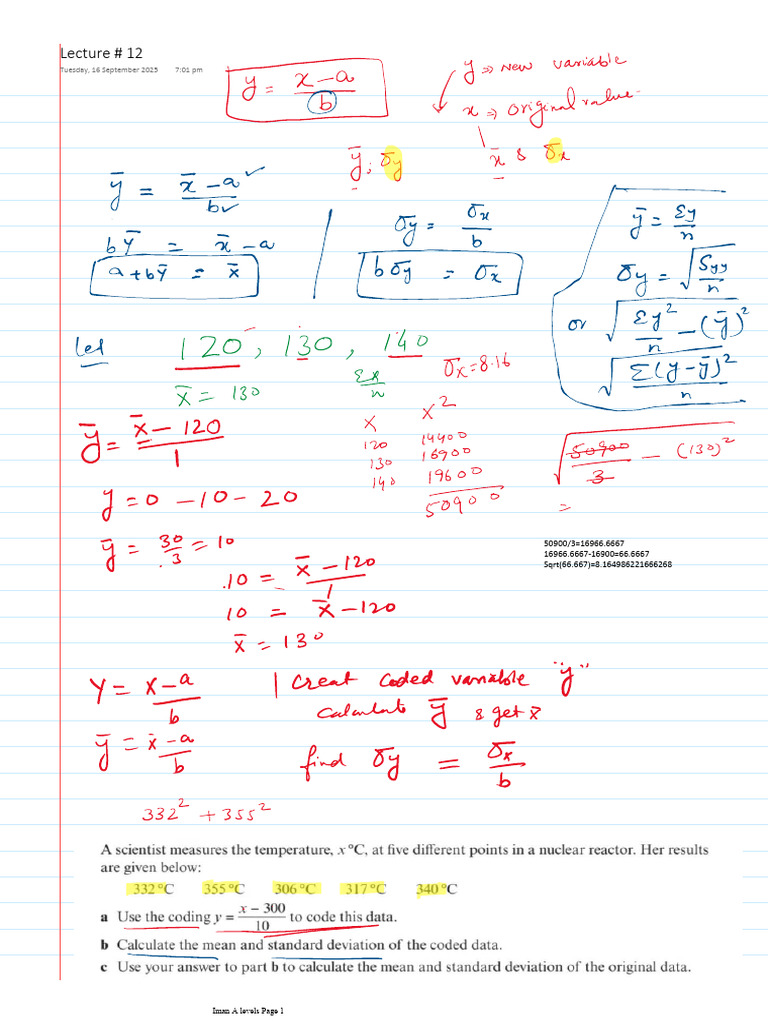 Lecture # 12
Tuesday, 16 September 2025 7:01 pm
y = (x – a)/b
y ⇒ New variable
x ⇒ original value
ȳ, σy
x̄ & σx
ȳ = (x̄ – a)/b
bȳ = x̄ – a
a + bȳ = x̄
σy = σx/b
bσy = σx
ȳ = Σy/n
σy = √(Syy/n)
or √(Σy²/n – (ȳ)²)
√(Σ(y – ȳ)²/n)
Let 120, 130, 140
x̄ = 130
Σx/n
σx = 8.16
ȳ = (x̄ – 120)/1
x x²
120 14400
130 16900
140 19600
50900
√(50900/3 – (130)²)
=
y = 0 – 10 – 20
50900/3=16966.6667
16966.6667-16900=66.6667
Sqrt(66.667)=8.164986221666268
ȳ = 30/3 = 10
10 = (x̄ – 120)/1
10 = x̄ – 120
x̄ = 130
Y = (x – a)/b
ȳ = (x̄ – a)/b
Creat coded variable "y"
calculate ȳ & get x̄
find σy = σx/b
332² + 355²
A scientist measures the temperature, x °C, at five different points in a nuclear reactor. Her results
are given below:
332 °C 355 °C 306 °C 317 °C 340 °C
a Use the coding y = (x – 300)/10 to code this data.
b Calculate the mean and standard deviation of the coded data.
c Use your answer to part b to calculate the mean and standard deviation of the original data.
Iman A levels Page 1